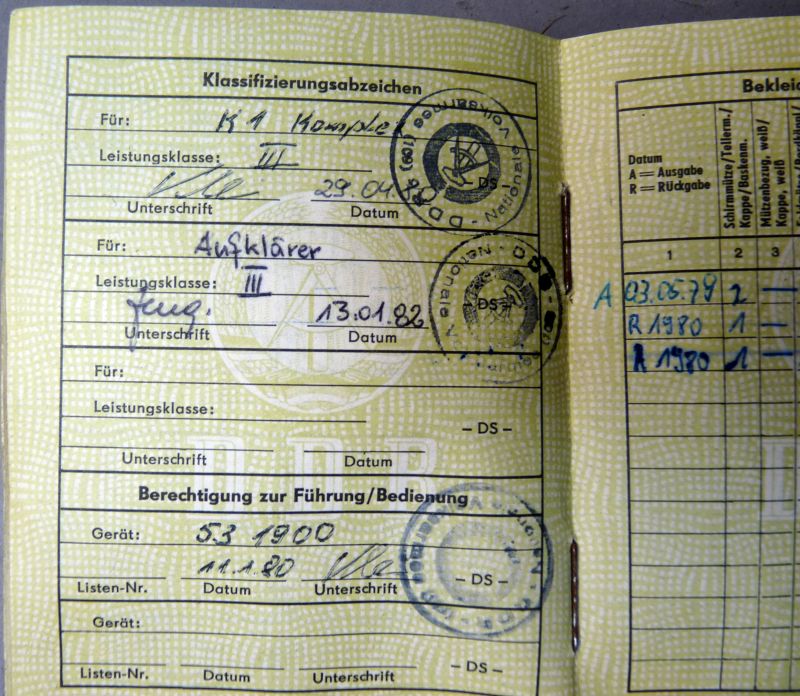 Klassifizierungsabzeichen
Für: K1 Komplei
Leistungsklasse: III
29.01.
Unterschrift Datum
-DS-
Nationale Volksarmee (109) DDR
Für: Aufklärer
Leistungsklasse: III
13.01.82
Unterschrift Datum
-DS-
Nationale DDR
Für:
Leistungsklasse:
– DS –
Unterschrift Datum
DDR
Berechtigung zur Führung/Bedienung
Gerät: 53 1900
11.1.80
Listen-Nr. Datum Unterschrift
– DS –
Gerät:
Listen-Nr. Datum Unterschrift
– DS –
Bekleid
Datum
A = Ausgabe
R = Rückgabe
Schirmmütze/Tellerm./
Kappe/Baskenm.
Mützenbezug, weiß/
Kappe, weiß
1 2 3
A 03.05.79 2 –
R 1980 1 –
A 1980 1 –